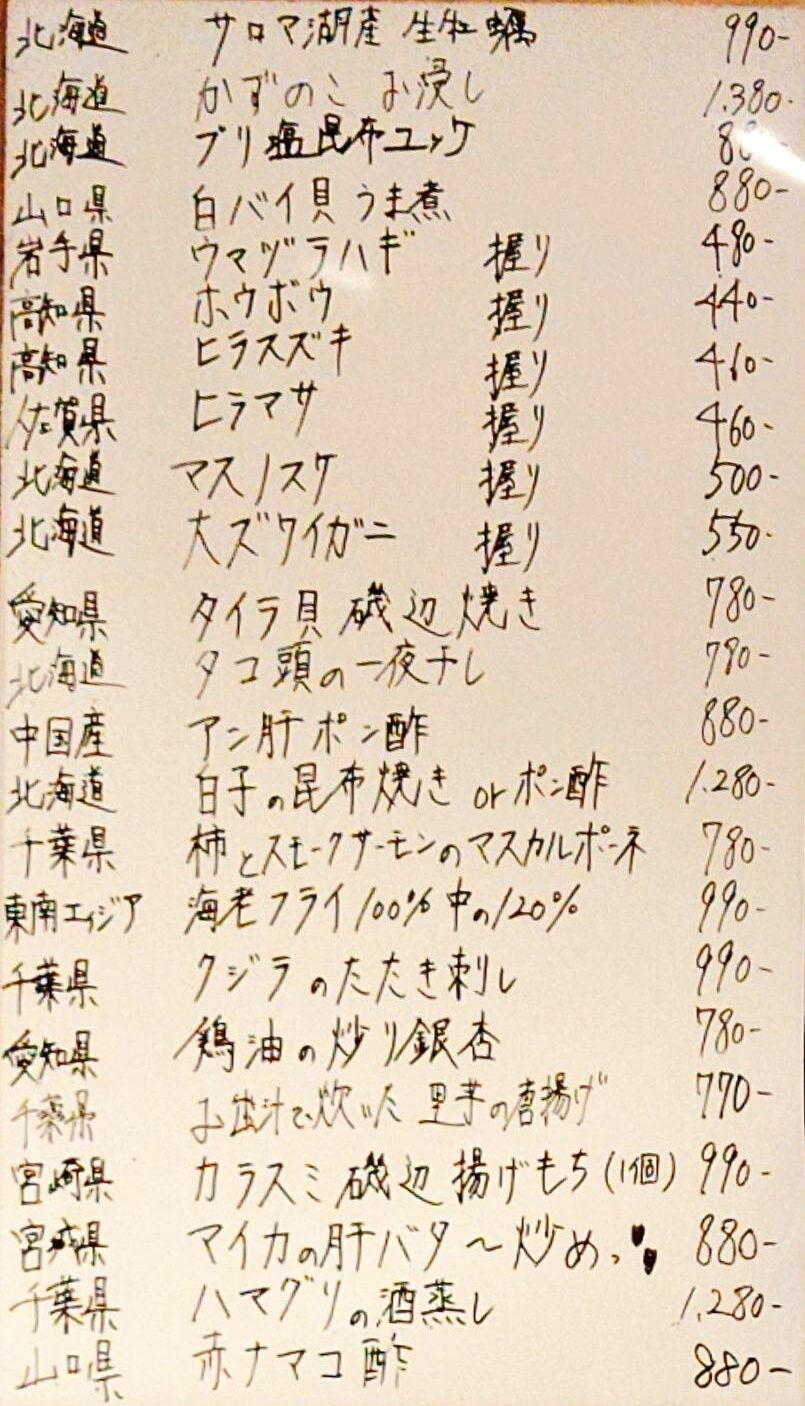 北海道 サロマ湖産 生牡蠣 990-
北海道 かずのこ お浸し 1.380-
北海道 ブリ 塩昆布ユッケ
山口県 白バイ貝 うま煮 880-
岩手県 ウマヅラハギ 握り 480-
高知県 ホウボウ 握り 440-
高知県 ヒラスズキ 握り 460-
佐賀県 ヒラマサ 握り 460-
北海道 マスノスケ 握り 500-
北海道 大ズワイガニ 握り 550-
愛知県 タイラ貝 磯辺焼き 780-
北海道 タコ頭の一夜干し 780-
中国産 アン肝ポン酢 880-
北海道 白子の昆布焼き orポン酢 1.280-
千葉県 柿とスモークサーモンのマスカルポーネ 780-
東南エイジア 海老フライ100%中の120% 990-
千葉県 クジラのたたき刺し 990-
愛知県 鶏油の炒り銀杏 780-
千葉県 お出汁で炊いた 里芋の唐揚げ 770-
宮崎県 カラスミ磯辺 揚げもち(1個) 990-
宮城県 マイカの肝バタ〜炒めっ 880-
千葉県 ハマグリの酒蒸し 1.280-
山口県 赤ナマコ酢 880-